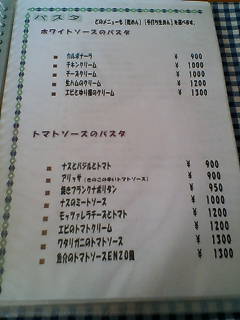 パスタ
どのメニューも【乾めん】【手打ち生めん】を選べます。
ホワイトソースのパスタ
■ カルボナーラ ¥ 900
■ チキンクリーム ¥ 1000
■ チーズクリーム ¥ 1000
■ 生ハムのクリーム ¥ 1200
■ エビときり粗のクリーム ¥ 1300
トマトソースのパスタ
■ ナスとバジルとトマト ¥ 900
■ アリッサ (きのこの辛いトマトソース) ¥ 900
■ 焼きフランクナポリタン ¥ 950
■ ナスのミートソース ¥ 1000
■ モッツァレラチーズとトマト ¥ 1200
■ エビのトマトクリーム ¥ 1200
■ ワタリガニのトマトソース ¥ 1300
■ 魚介のトマトソースZENZO風 ¥ 1300